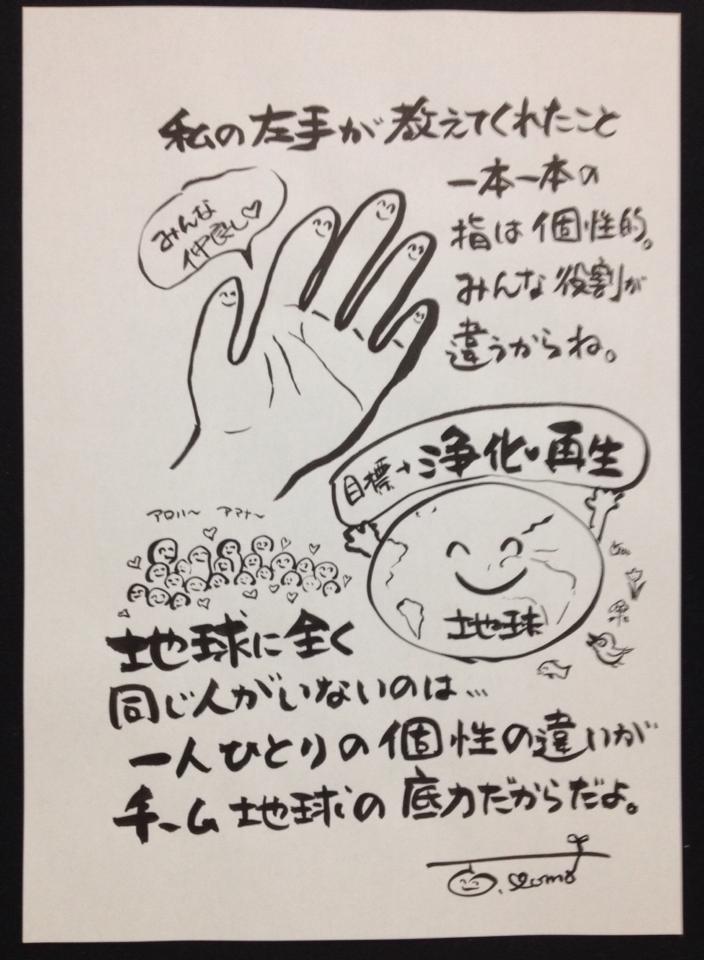 私の左手が教えてくれたこと
みんな
仲良し♡
一本一本の
指は個性的。
みんな役割が
違うからね。
目標→浄化・再生
地球
アロハ〜 アマナ〜
地球に全く
同じ人がいないのは…
一人ひとりの個性の違いが
チーム地球の底力だからだよ。